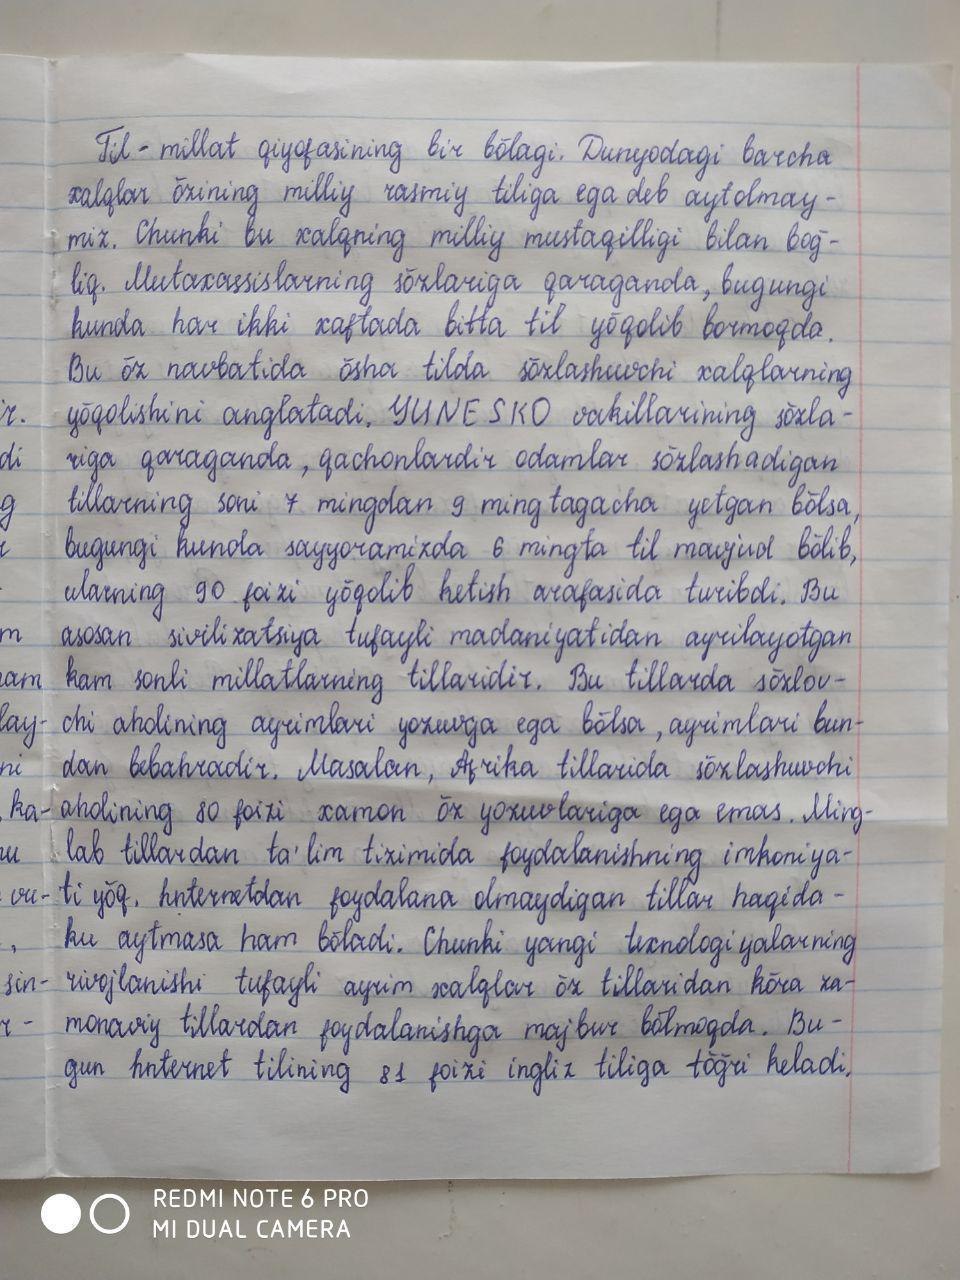 Til - millat qiyofasining bir bōlagi. Dunyodagi barcha
xalqlar ōzining milliy rasmiy tiliga ega deb aytolmay-
miz. Chunki bu xalqning milliy mustaqilligi bilan boḡ-
liq. Mutaxassislarning sōzlariga qaraganda, bugungi
kunda har ikki xaftada bitta til yōqolib bormoqda.
Bu ōz navbatida ōsha tilda sōzlashuvchi xalqlarning
ir. yōqolishini anglatadi. YUNESKO vakillarining sōzla-
di riga qaraganda, qachonlardir odamlar sōzlashadigan
g tillarning soni 7 mingdan 9 mingtagacha yetgan bōlsa,
r bugungi kunda sayyoramizda 6 mingta til mavjud bōlib,
- ularning 90 foizi yōqolib ketish arafasida turibdi. Bu
m asosan sivilizatsiya tufayli madaniyatidan ayrilayotgan
nam kam sonli millatlarning tillaridir. Bu tillarda sōzlov-
lay- chi aholining ayrimlari yozuvga ega bōlsa, ayrimlari bun-
ni dan bebahradir. Masalan, Afrika tillarida sōzlashuvchi
, ka- aholining 80 foizi xamon ōz yozuvlariga ega emas. Ming-
lab tillardan ta'lim tizimida foydalanishning imkoniya-
vu- ti yōq. Internetdan foydalana olmaydigan tillar haqida-
, ku aytmasa ham bōladi. Chunki yangi texnologiyalarning
sin- rivojlanishi tufayli ayrim xalqlar ōz tillaridan kōra za-
r- monaviy tillardan foydalanishga majbur bōlmoqda. Bu-
gun Internet tilining 81 foizi ingliz tiliga tōḡri keladi.
REDMI NOTE 6 PRO
MI DUAL CAMERA